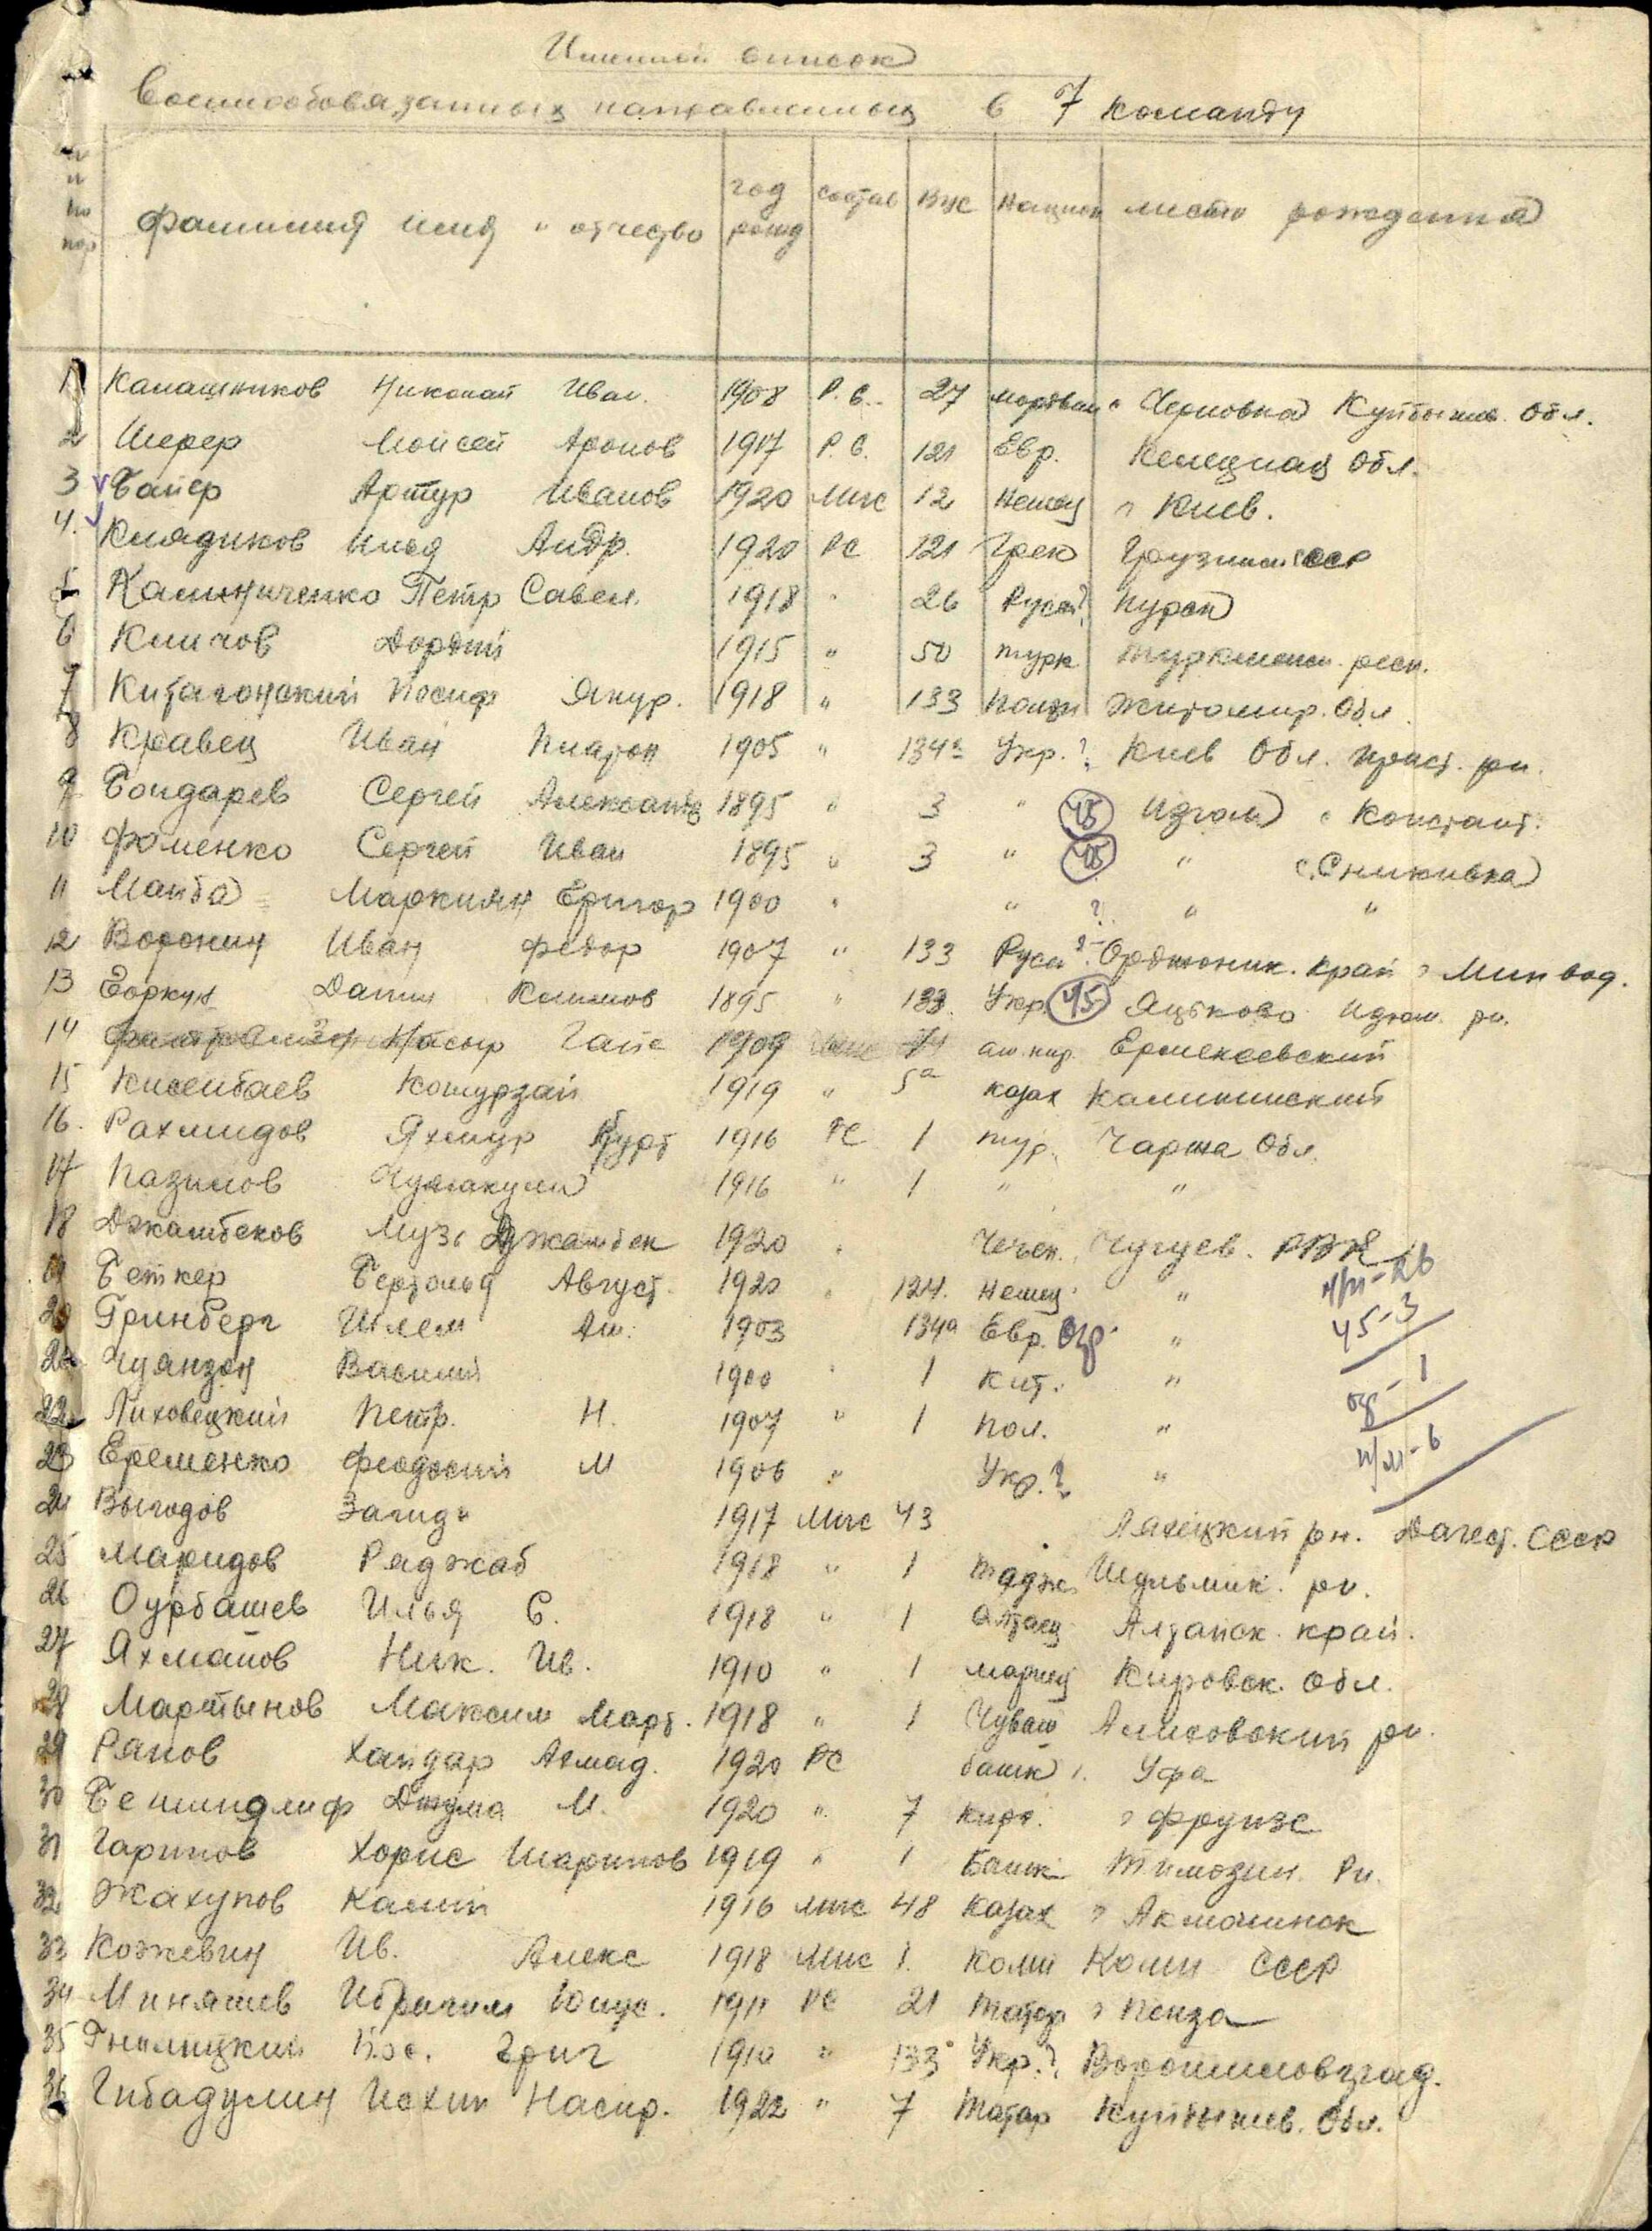 Именной список
Военнообязанных направленных в 7 команду
№ по пор
фамилия имя и отчество
год рожд
состав
Вус
Национ
место рождения
1 Калашников Николай Иван. 1908 Р.С. 27 мордвин с Черновка Куйбышев. Обл.
2 Шерер Мойсей Аронов 1917 Р.С. 121 Евр. Обл.
3 Байер Артур Иванов 1920 мнс 12 Немец г Киев.
4. Клядиков Илья Андр. 1920 РС 121 Грек Грузинс ССР
5 Калиниченко Петр Савел. 1918 " 26 Русск? Курск
6 Кличов Дордий 1915 " 50 турк. туркменск. респ.
7 Китагонский Иосиф Янур. 1918 " 133 Поляк Житомир. Обл.
8 Кравец Иван Платон 1905 " 134а Укр.? Киев Обл. рн.
9 Бондарев Сергей Александ 1895 " 3 " 45 Изюм с Констант.
10 Фоменко Сергей Иван 1895 " 3 " 45 " с. Сникивка
11 Майба Маркиян Григор 1900 " " ? " "
12 Воронин Иван Федор 1907 " 133 Русск ?. Орджоник. край г Мин вод.
13 Боркун Данил Климов 1895 " 133. Укр. 45 Яцьково Изюм. рн.
14 Насыр Гапс 1909 74 Ермекеевский
15 Кисенбаев Кожурзай 1919 " 5а казах Калининский
16. Рахмидов Яхмур Курт 1916 РС 1 тур. Чаржа Обл.
17 Назимов Чумакули 1916 " 1 " "
18 Джамбеков Муза Джамбек 1920 " Чечен. Чугуев. РВК
19 Беткер Бертольд Август. 1920 " 124. немец. " н/м-26
20 Гринберг Шлем Аш. 1903 134а Евр. Огр. " 45-3
21 Чуянзон Василий 1900 " 1 Кит. " ог-1
22 Лиховецкий Петр. Н. 1907 " 1 Пол. " н/м-6
23 Еременко Феодосий М 1906 " Укр.? "
24 Выгодов Загид. 1917 Мнс 43 Лакецкий рн. Дагест. СССР
25 Маридов Раджаб 1918 " 1 тадж. Шульмак. рн.
26 Оурбашев Илья С. 1918 " 1 алтаец Алтайск. край.
27 Яхманов Ник. Ив. 1910 " 1 мариец Кировск. обл.
28 Мартынов Максим Март. 1918 " 1 Чуваш Аликовский рн.
29 Рянов Хайдар Ахмад. 1920 РС башк г. Уфа
30 Бешиндлиф Джума М. 1920 " 7 кирг. г Фрунзе
31 Гарипов Хорис Шарипов 1919 " 1 Башк. Тимозин. Рн.
32 Жахупов Калий 1916 мнс 48 Казах г Акмолинск
33 Кожевин Ив. Алекс 1918 Мнс 1. Коми Коми СССР
34 Миняшев Ибрагим Юнус. 1911 РС 21 Татар г Пенза
35 Гнилицкий Иос. Григ 1910 " 133 Укр.? Ворошиловград.
36 Гибадулин Исхин Насир. 1922 " 7 Татар Куйбышев. Обл.